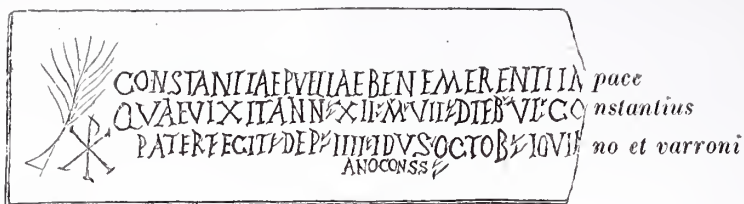 CONSTANTIAE PVELLAE BENEMERENTI IN pace
QVAE VIXIT ANN XII M VII DIEB VI CO nstantius
PATER FECIT DEP IIII IDVS OCTOB IOVIA no et varroni
ANO CONSS